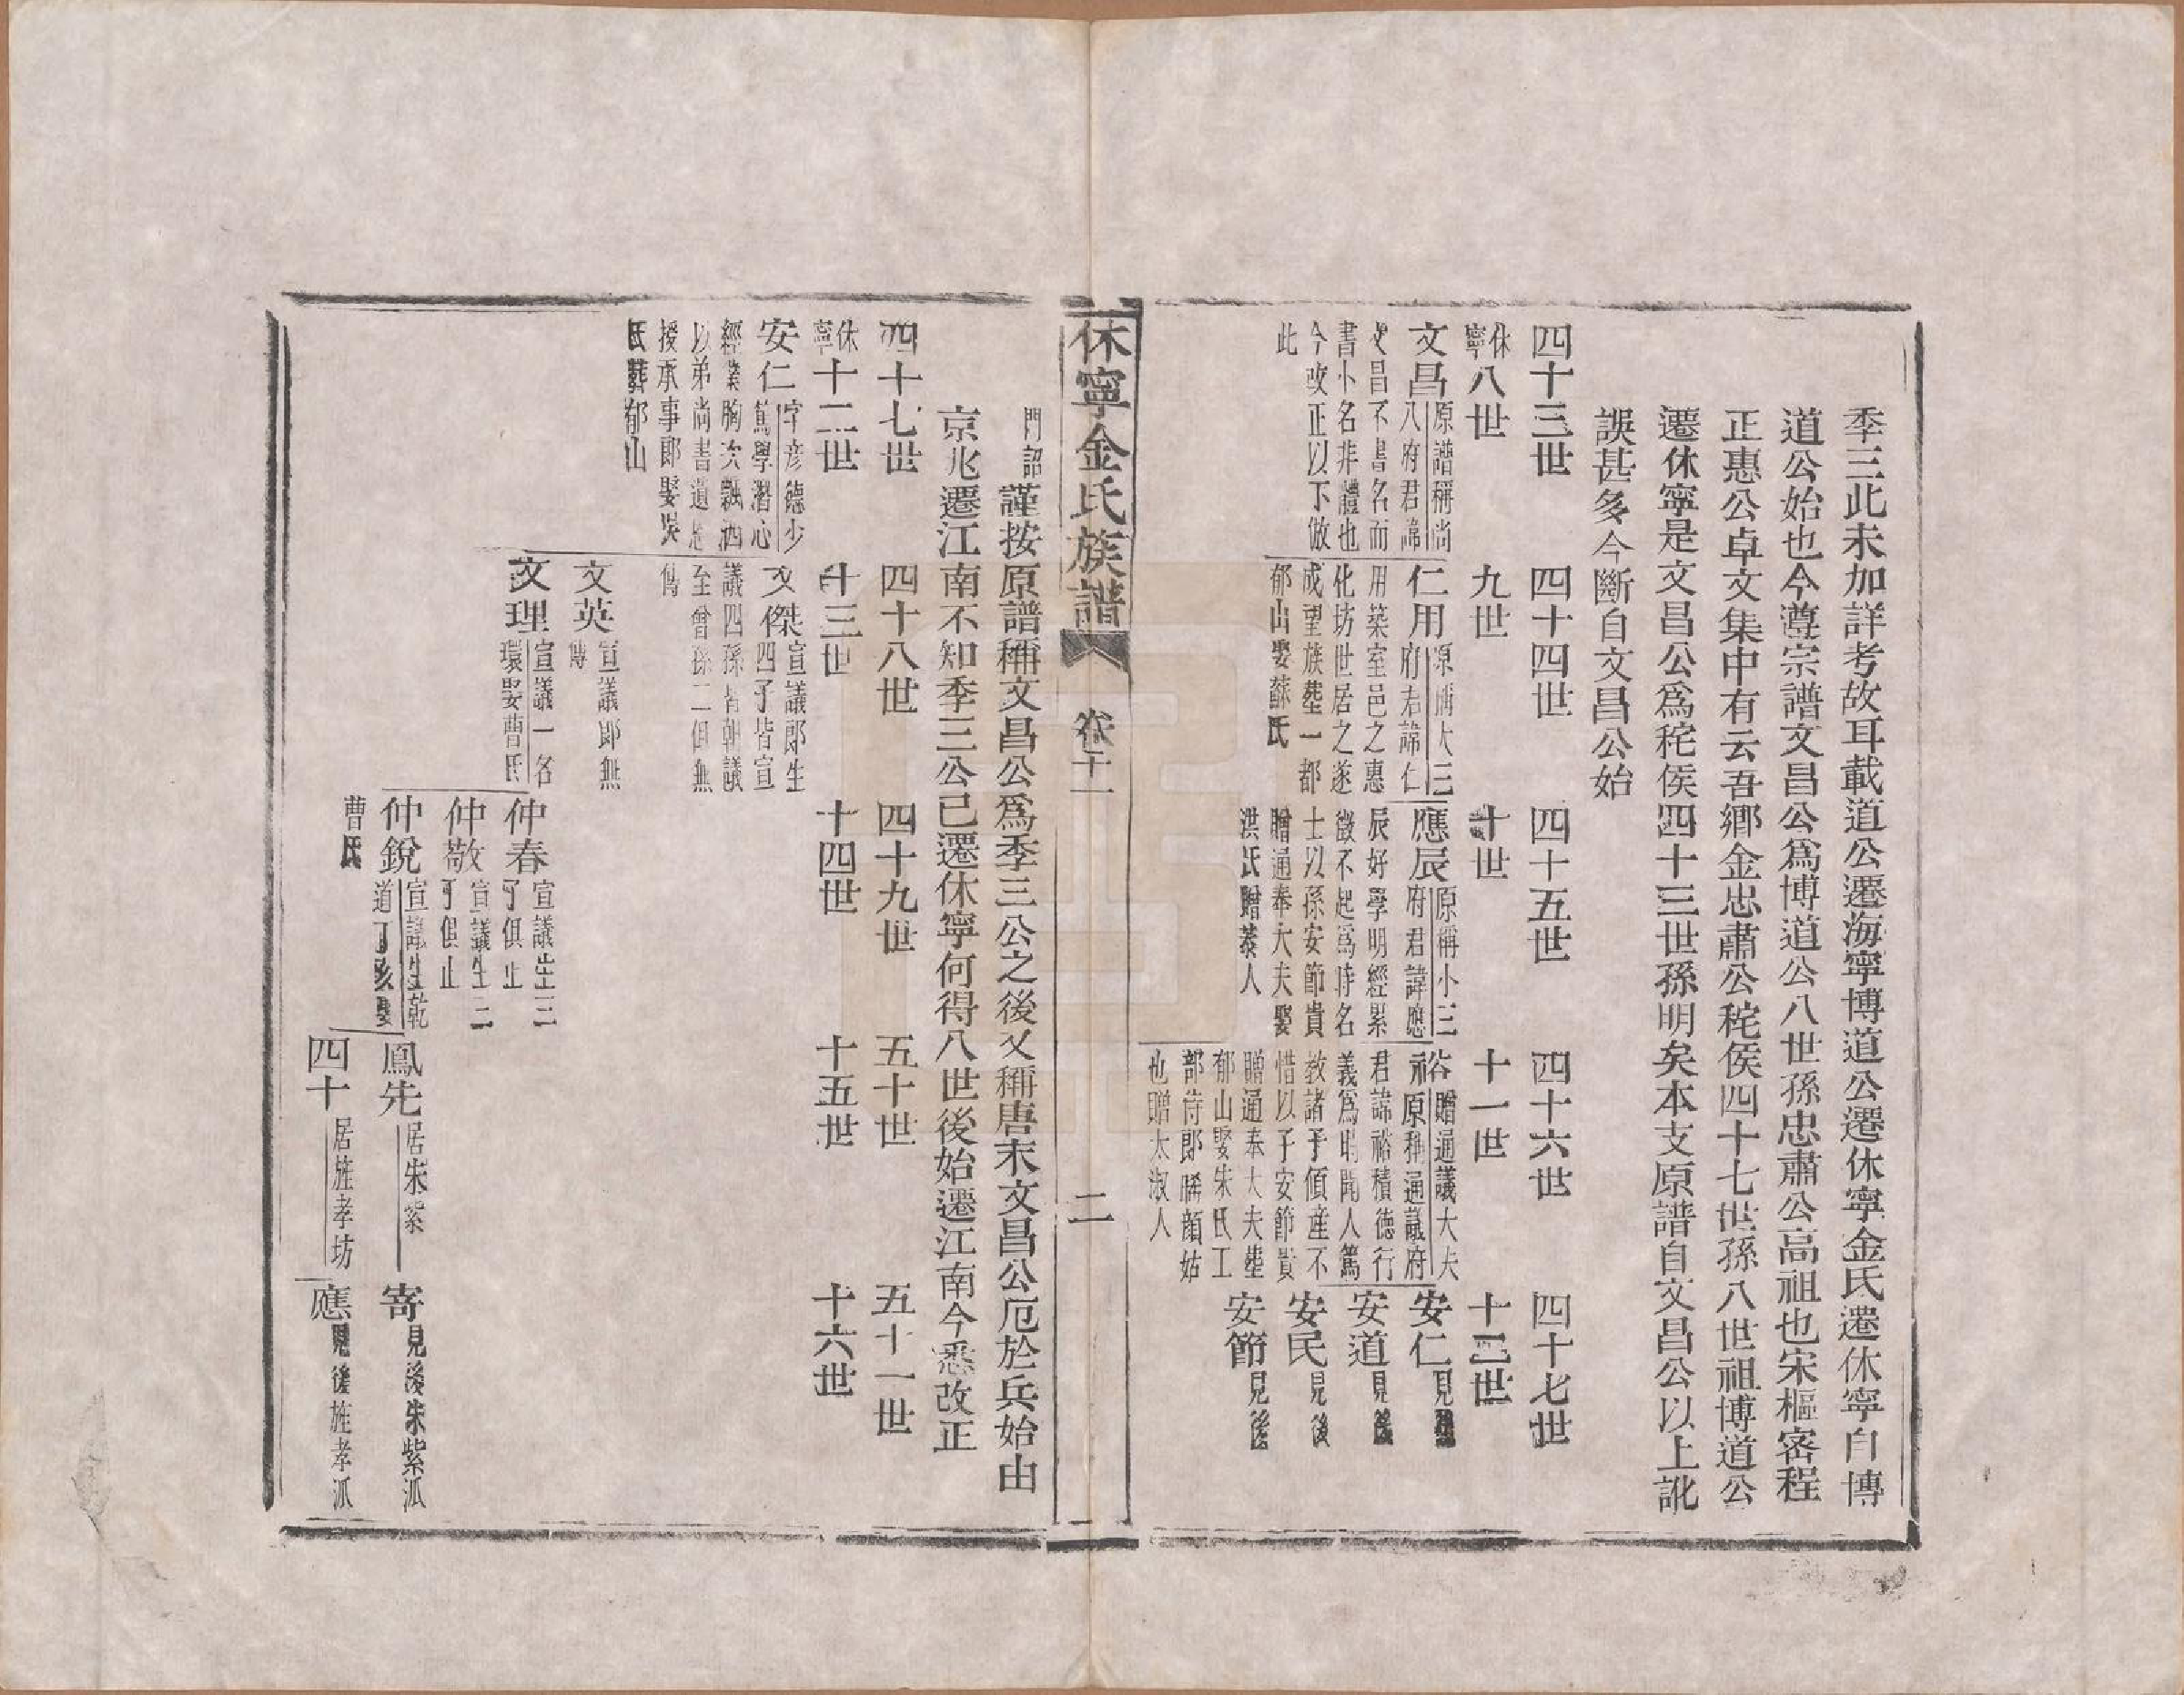 季三此未加詳考故耳載道公遷海寧博道公遷休寧金氏遷休寧自博
道公始也今遵宗譜文昌公爲博道公八世孫忠肅公高祖也宋樞密程
正惠公卓文集中有云吾鄉金忠肅公秺侯四十七世孫八世祖博道公
遷休寧是文昌公爲秺侯四十三世孫明矣本支原譜自文昌公以上訛
誤甚多今斷自文昌公始
四十三世
四十四世
四十五世
四十六世
四十七世
休寧八世
九世
十世
十一世
十二世
文昌
原譜稱尚
八府君諱
文昌不書名而
書小名非禮也
今改正以下倣
此
仁用
原稱大三
府君諱仁
用築室邑之惠
化坊世居之遂
成望族塟一都
郁山娶蘇氏
應辰
原稱小三
府君諱應
辰好學明經累
徵不起爲時名
士以孫安節貴
贈通奉大夫娶
洪氏贈恭人
裕
贈通議大夫
原稱通議府
君諱裕積德行
義爲時聞人篤
教諸子傾產不
惜以子安節貴
贈通奉大夫塟
郁山娶朱氏工
部侍郎晞顏姑
也贈太淑人
安仁見後
安道見後
安民見後
安節見後
休寧金氏族譜
卷十一
二
門詔
謹按原譜稱文昌公爲季三公之後又稱唐末文昌公厄於兵始由
京兆遷江南不知季三公已遷休寧何得八世後始遷江南今悉改正
四十七世
四十八世
四十九世
五十世
五十一世
休寧十二世
十三世
十四世
十五世
十六世
安仁
字彦德少
篤學潛心
經業胸次飄洒
以弟尚書遺恩
授承事郎娶吳
氏葬郁山
文傑
宣議郎生
四子皆宣
議四孫皆朝議
至曾孫二俱無
傳
文英
宣議郎無
傳
文理
宣議一名
環娶曹氏
仲春
宣議生三
子俱止
仲敬
宣議生二
子俱止
仲銳
宣議生乾
道丁亥娶
曹氏
鳳先
居朱紫
四十
居旌孝坊
寄
見後朱紫派
應
見後旌孝派